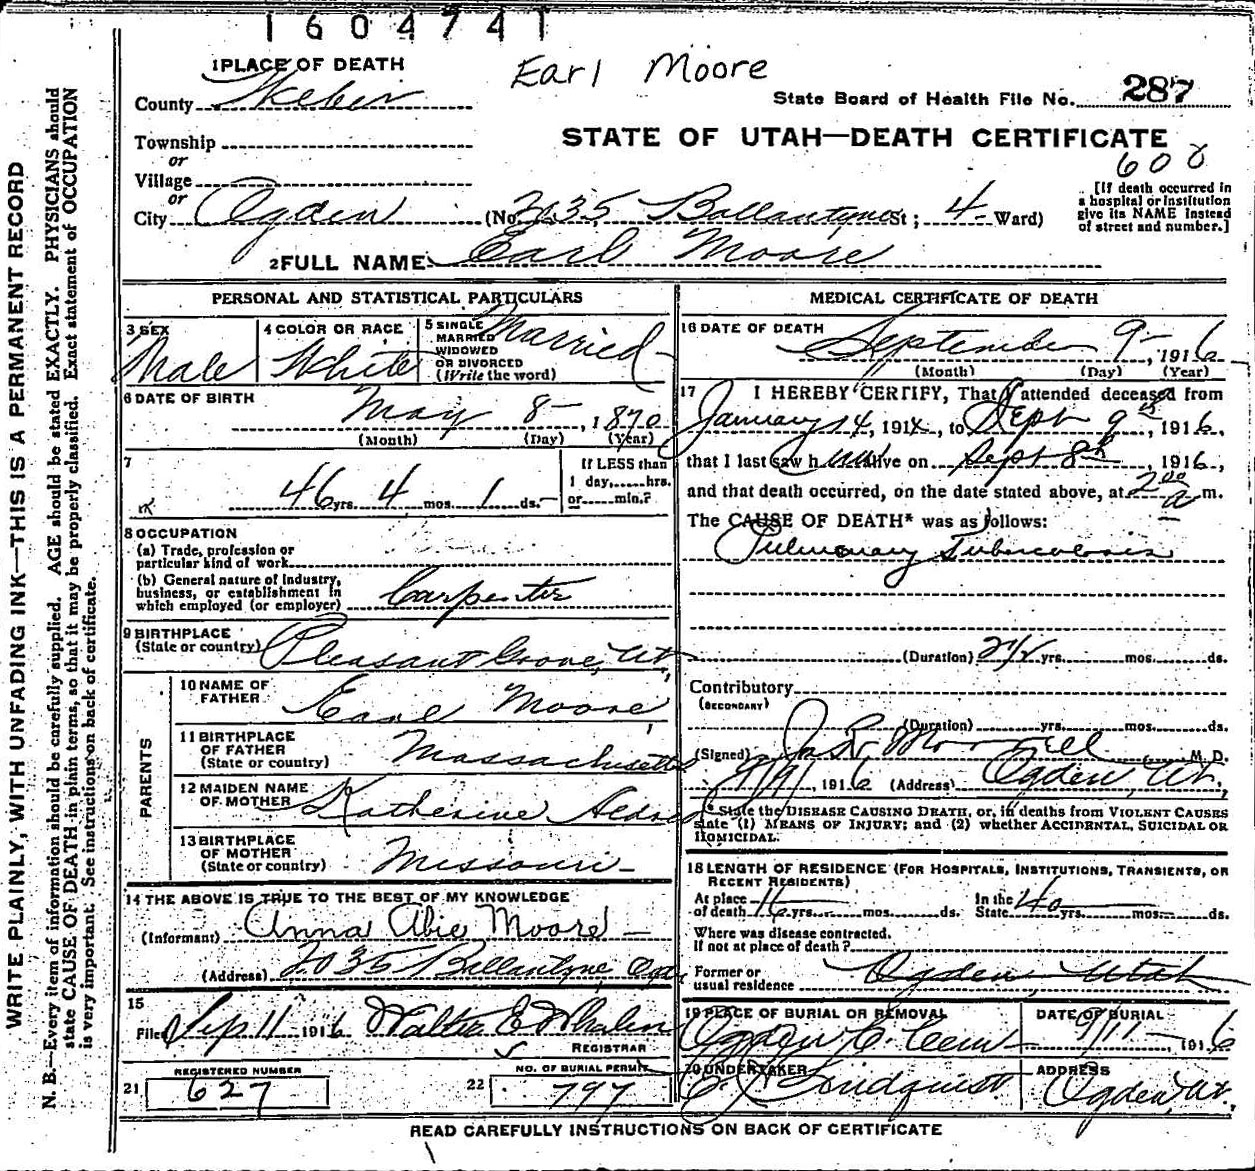 1604741
Earl Moore
1 PLACE OF DEATH
County Weber
State Board of Health File No. 287
STATE OF UTAH—DEATH CERTIFICATE
600
Township
or
Village
or
City Ogden (No. 2035 Ballantyne St; 4 Ward)
[If death occurred in
a hospital or institution
give its NAME instead
of street and number.]
2 FULL NAME Earl Moore
PERSONAL AND STATISTICAL PARTICULARS
3 SEX
Male
4 COLOR OR RACE
White
5 SINGLE
MARRIED
WIDOWED
OR DIVORCED
(Write the word)
Married
6 DATE OF BIRTH
May 8, 1870
(Month) (Day) (Year)
7
46 yrs. 4 mos. 1 ds.
If LESS than
1 day,......hrs.
or......min.?
8 OCCUPATION
(a) Trade, profession or
particular kind of work
(b) General nature of industry,
business, or establishment in
which employed (or employer) Carpenter
9 BIRTHPLACE
(State or country) Pleasant Grove, Ut,
PARENTS
10 NAME OF
FATHER Earl Moore
11 BIRTHPLACE
OF FATHER
(State or country) Massachusetts
12 MAIDEN NAME
OF MOTHER Katherine
13 BIRTHPLACE
OF MOTHER
(State or country) Missouri
14 THE ABOVE IS TRUE TO THE BEST OF MY KNOWLEDGE
(Informant) Anna Abie Moore
(Address) 2035 Ballantyne, Ogd
15
Filed Sep 11 1916 Walter E Whalen
REGISTRAR
21 REGISTERED NUMBER
627
22 NO. OF BURIAL PERMIT
797
MEDICAL CERTIFICATE OF DEATH
16 DATE OF DEATH
September 9, 1916
(Month) (Day) (Year)
17 I HEREBY CERTIFY, That I attended deceased from
January 14, 1914, to Sept 9th, 1916,
that I last saw him alive on Sept 8th, 1916,
and that death occurred, on the date stated above, at 2 00 a m.
The CAUSE OF DEATH* was as follows:
Pulmonary Tuberculosis
(Duration) 2 1/2 yrs. mos. ds.
Contributory
(SECONDARY)
(Duration) yrs. mos. ds.
(Signed) Jos R Morrell M. D.
9/9, 1916 (Address) Ogden, Ut,
* State the DISEASE CAUSING DEATH, or, in deaths from VIOLENT CAUSES
state (1) MEANS OF INJURY; and (2) whether ACCIDENTAL, SUICIDAL OR
HOMICIDAL.
18 LENGTH OF RESIDENCE (FOR HOSPITALS, INSTITUTIONS, TRANSIENTS, OR
RECENT RESIDENTS)
At place
of death 16 yrs. mos. ds.
In the
State 46 yrs. mos. ds.
Where was disease contracted.
If not at place of death?
Former or
usual residence Ogden, Utah
19 PLACE OF BURIAL OR REMOVAL
Ogden C. Cem
DATE OF BURIAL
9/11 1916
20 UNDERTAKER
Lindquist
ADDRESS
Ogden, Ut,
READ CAREFULLY INSTRUCTIONS ON BACK OF CERTIFICATE
WRITE PLAINLY, WITH UNFADING INK—THIS IS A PERMANENT RECORD
N. B.—Every item of information should be carefully supplied. AGE should be stated EXACTLY. PHYSICIANS should
state CAUSE OF DEATH in plain terms, so that it may be properly classified. Exact statement of OCCUPATION
is very important. See instructions on back of certificate.